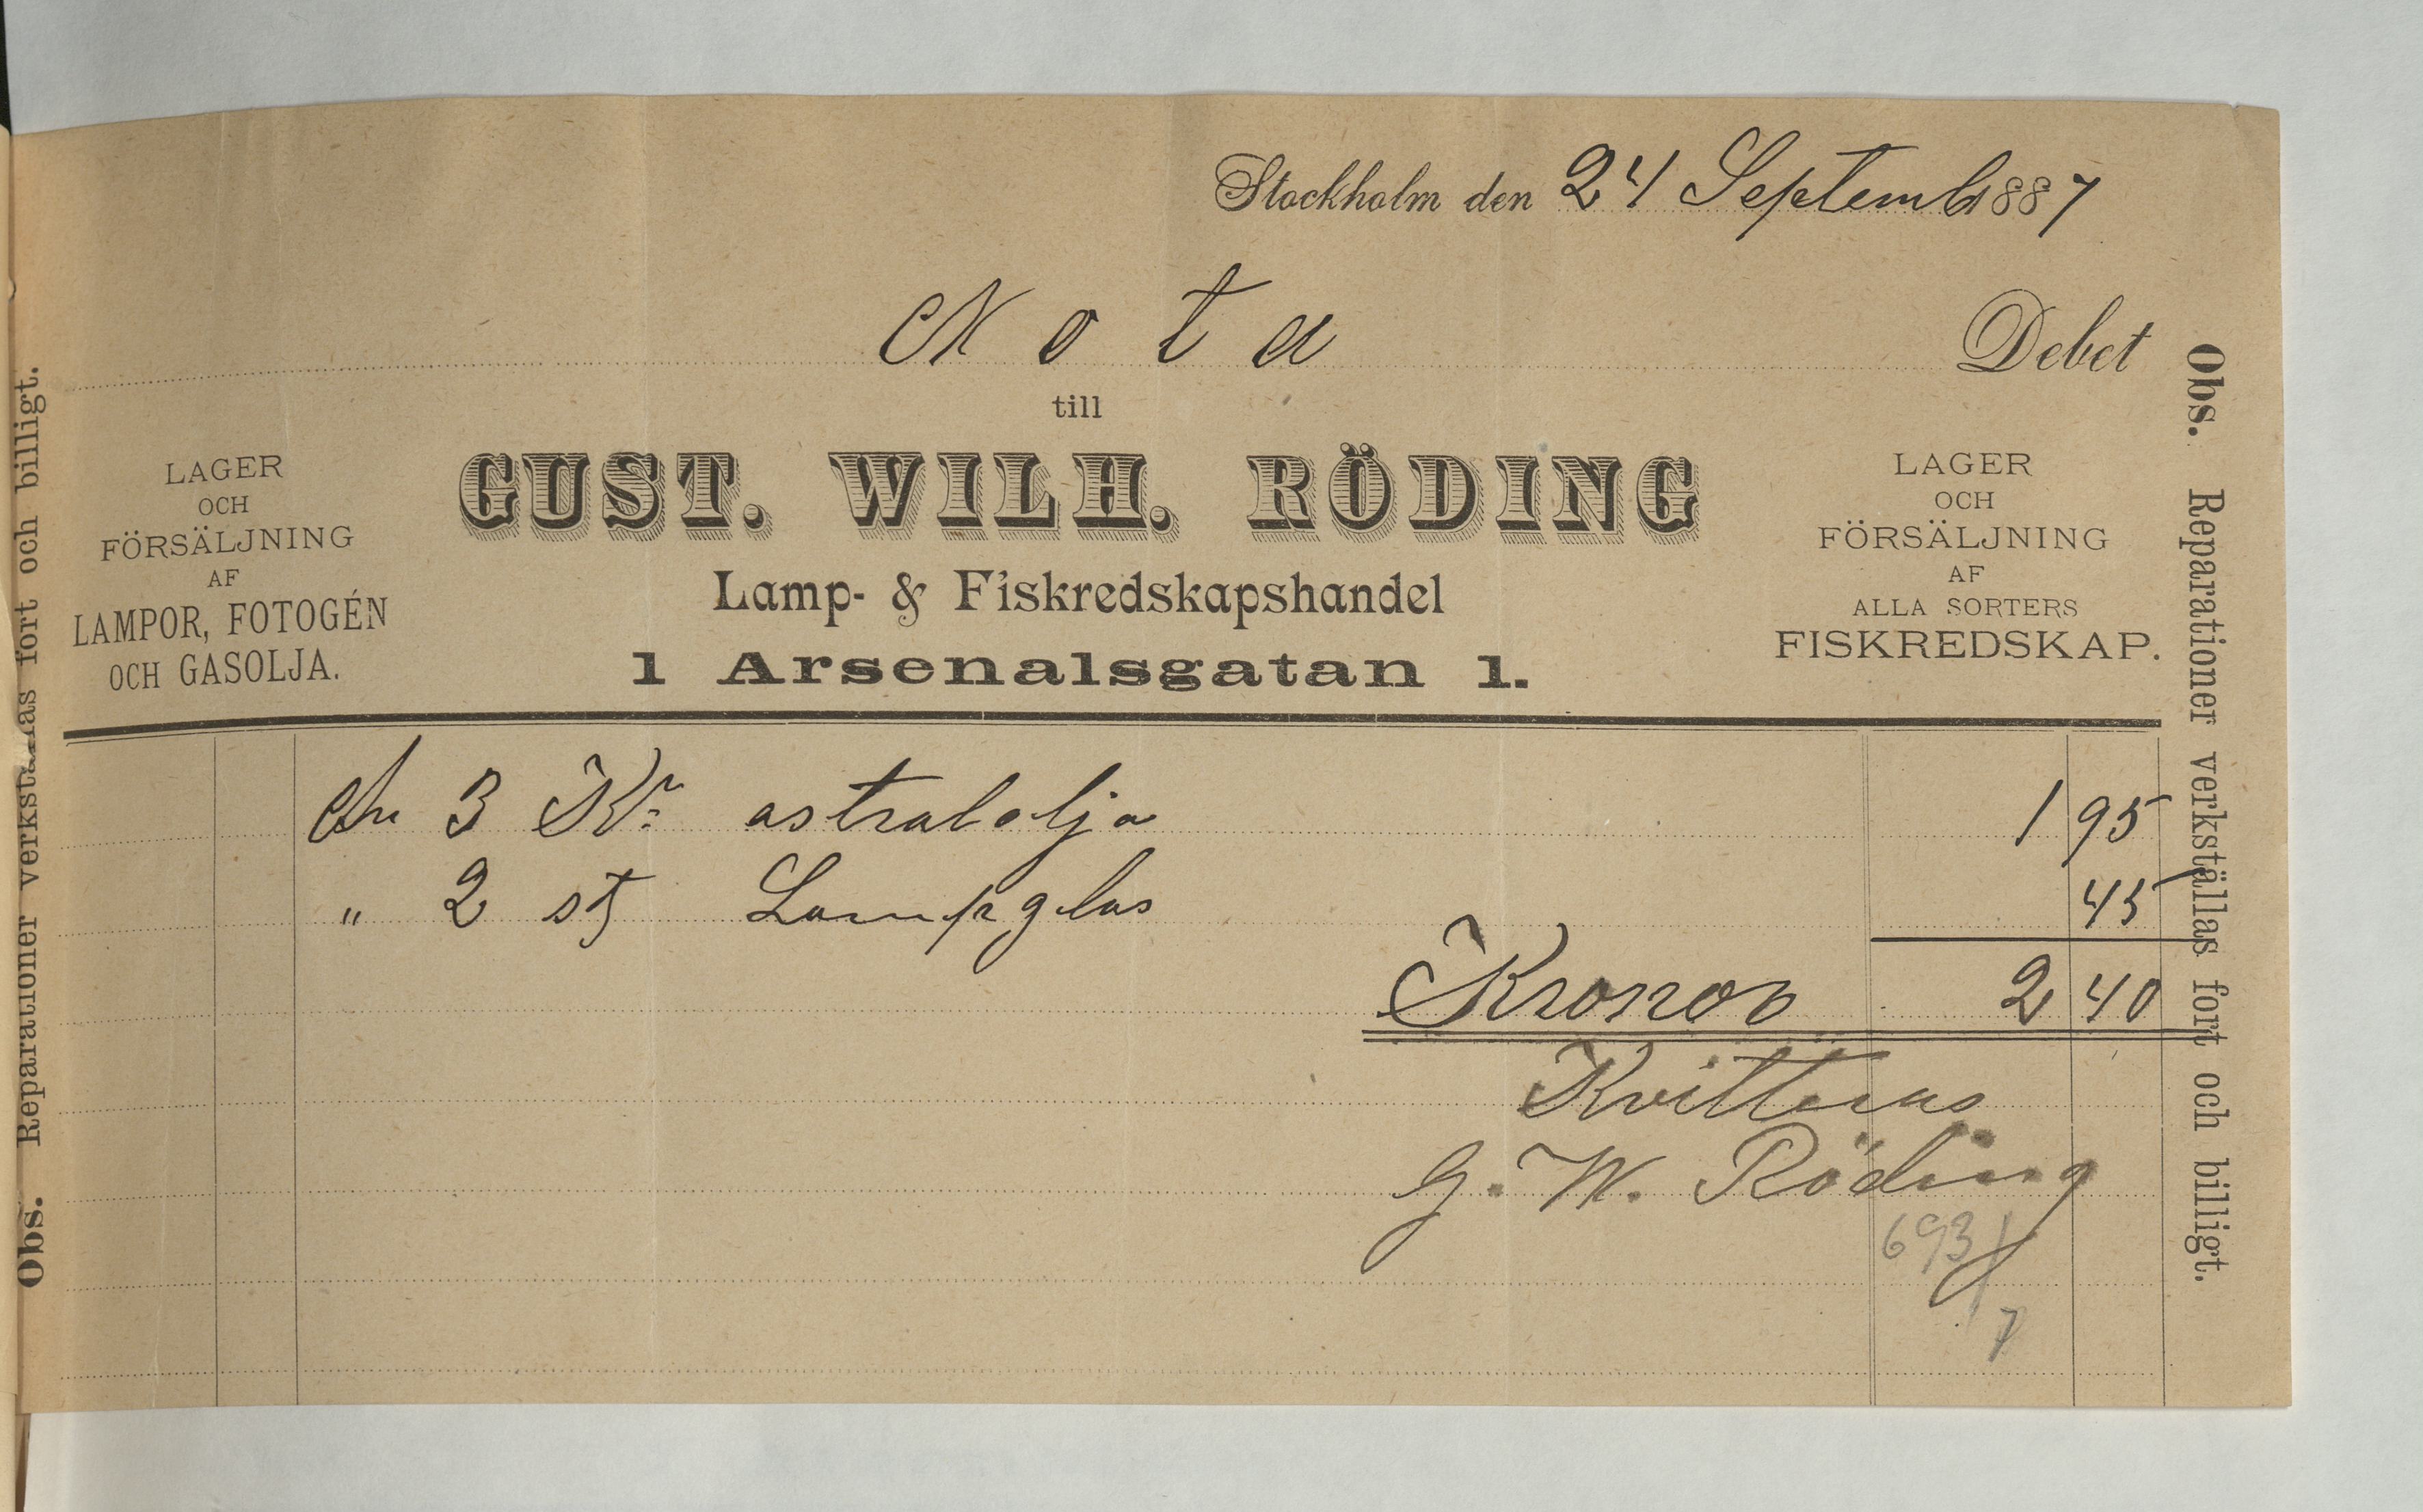 Stockholm den 24 Septemb 1887
Nota Debet
till
GUST. WILH. RÖDING
Lamp- & Fiskredskapshandel
1 Arsenalsgatan 1.
LAGER
OCH
FÖRSÄLJNING
AF
LAMPOR, FOTOGÉN
OCH GASOLJA.
LAGER
OCH
FÖRSÄLJNING
AF
ALLA SORTERS
FISKREDSKAP.
An 3 Kr astralolja 1 95
" 2 st Lampglas 45
Kronor 2 40
Kvitteras
G. W. Röding
693/7
Obs. Reparationer verkställas fort och billigt.
Obs. Reparationer verkställas fort och billigt.